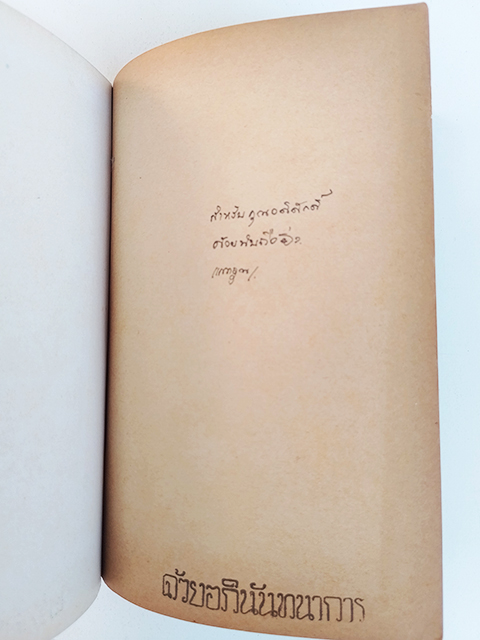 สำหรับคุณอดิศักดิ์
ด้วยนับถือยิ่ง
ด้วยอภินันทนาการ